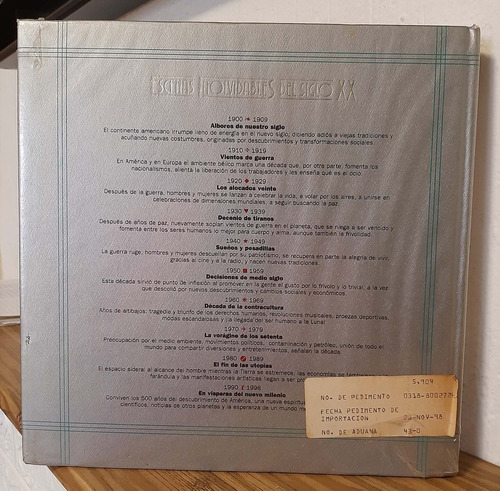 ESCENAS INOLVIDABLES DEL SIGLO XX
1900 1909
Albores de nuestro siglo
El continente americano irrumpe lleno de energía en el nuevo siglo, diciendo adiós a viejas tradiciones y
acuñando nuevas costumbres, originadas por descubrimientos y transformaciones sociales.
1910 1919
Vientos de guerra
En América y en Europa el ambiente bélico marca una década que, por otra parte, fomenta los
nacionalismos, alienta la liberación de los trabajadores y les enseña qué es el ocio.
1920 1929
Los alocados veinte
Después de la guerra, hombres y mujeres se lanzan a celebrar la vida, a volar por los aires, a unirse en
celebraciones de dimensiones mundiales, a seguir buscando la paz.
1930 ♥ 1939
Decenio de tiranos
Después de años de paz, nuevamente soplan vientos de guerra en el planeta, que se niega a ser vendido y
fomenta entre los seres humanos lo mejor para cuerpo y alma, aunque también la frivolidad.
1940 ★ 1949
Sueños y pesadillas
La guerra ruge, hombres y mujeres descuellan por su patriotismo, se recupera en parte la alegría de vivir,
gracias al cine y a la radio, y nacen nuevas tradiciones.
1950 1959
Decisiones de medio siglo
Esta década sirvió de punto de inflexión al promover en la gente el gusto por lo frívolo y lo trivial, a la vez
que descolló por nuevos descubrimientos y cambios sociales y económicos.
1960 1969
Década de la contracultura
Años de altibajos: tragedia y triunfo de los derechos humanos, revoluciones musicales, proezas deportivas,
modas escandalosas y ¡la llegada del ser humano a la Luna!
1970 1979
La vorágine de los setenta
Preocupación por el medio ambiente, movimientos políticos, contaminación y petróleo, unión de todo el
mundo para compartir diversiones y entretenimientos, señalan la década.
1980 1989
El fin de las utopías
El espacio sideral al alcance del hombre mientras la Tierra se estremece; las economías se
farándula y las manifestaciones artísticas llegan a ser
1990 1998
En vísperas del nuevo milenio
Conviven los 500 años del descubrimiento de América, una nueva
científicos, noticias de otros planetas y la esperanza de un mundo
5,904
NO. DE PEDIMENTO 0318-8002776
FECHA PEDIMENTO DE
IMPORTACION -NOV-98
NO. DE ADUANA 43-0